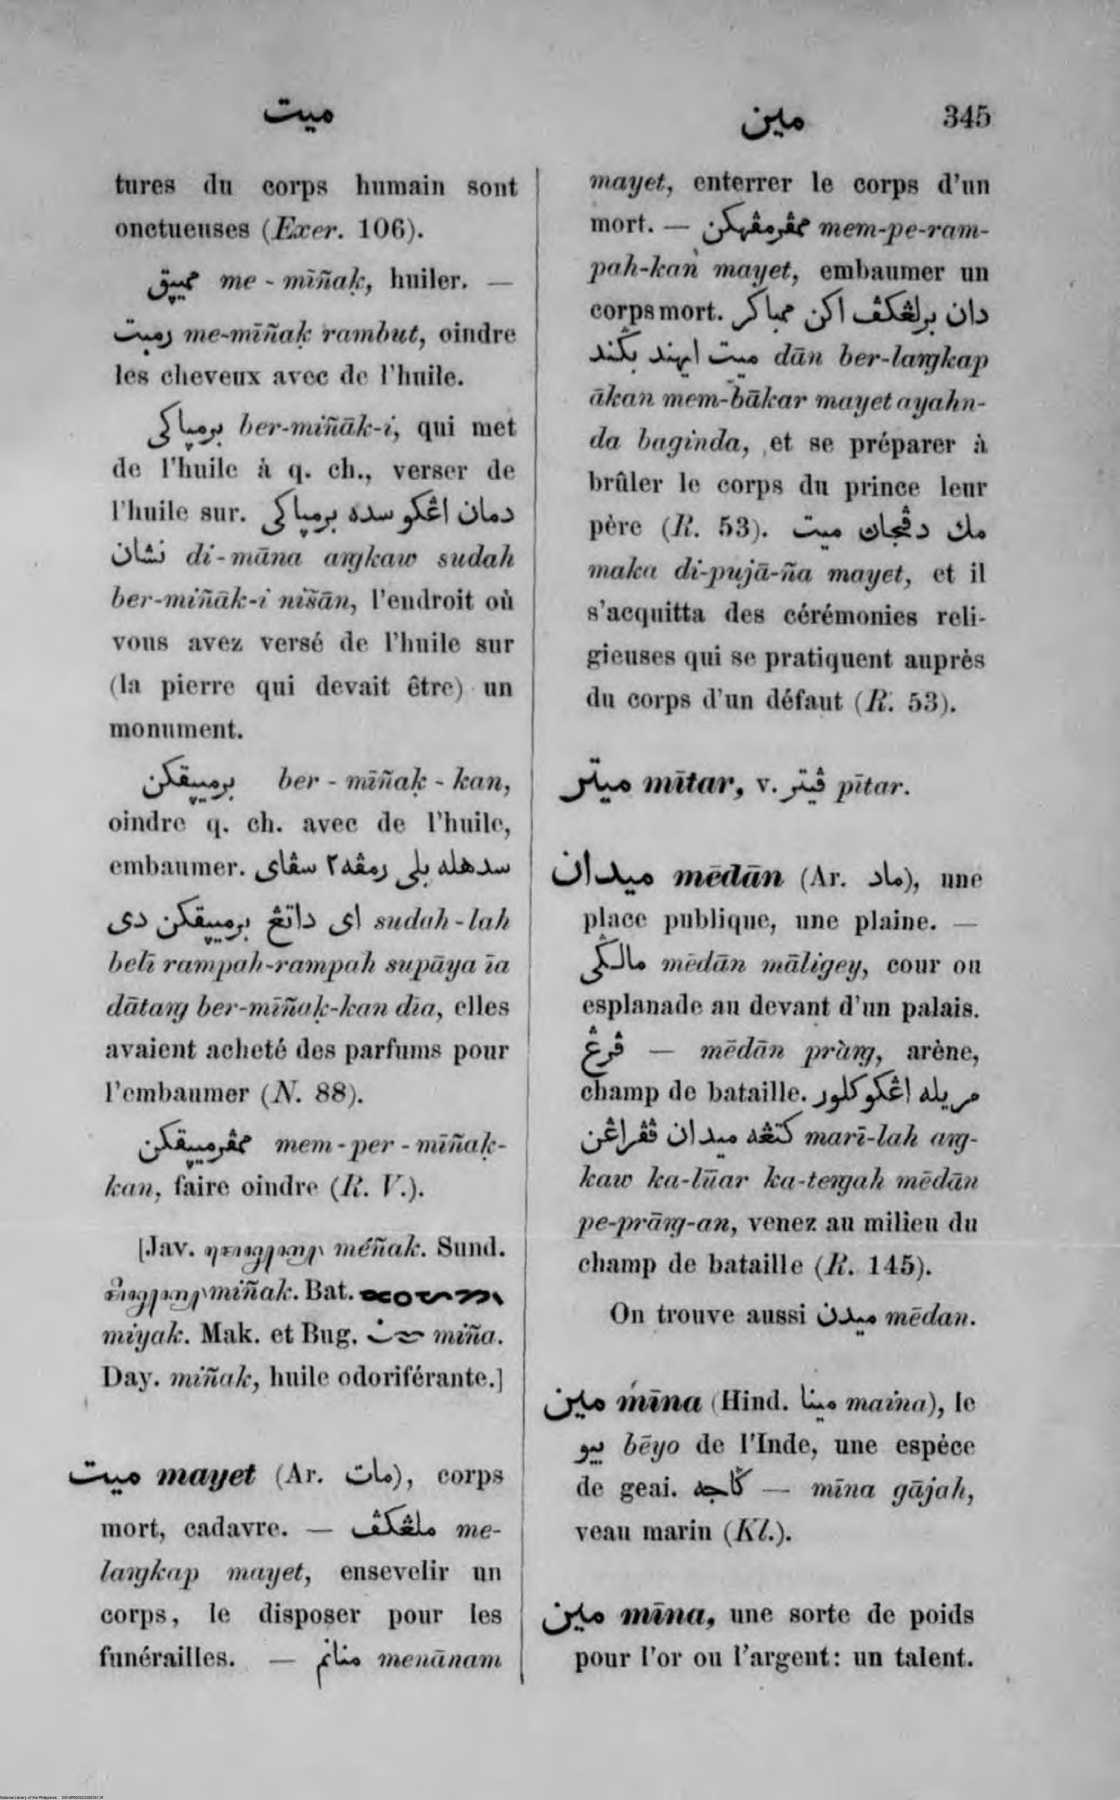 ميت
مين 345
tures du corps humain sont
onctueuses (Exer. 106).
me-mīñaḳ, huiler. —
me-mīñaḳ rambut, oindre
les cheveux avec de l'huile.
برمياكي ber-miñāk-i, qui met
de l'huile à q. ch., verser de
l'huile sur. دمان اڠكو سده برمياكي
نشان di-māna aṅgkaw sudah
ber-miñāk-i nīšān, l'endroit où
vous avez versé de l'huile sur
(la pierre qui devait être) un
monument.
ber-mīñaḳ-kan,
oindre q. ch. avec de l'huile,
embaumer. سدهله بلي رمڤه٢ سڤاي
اي داتڠ برمييقكن دي sudah-lah
belī rampah-rampah supāya īa
dātaṅg ber-mīñaḳ-kan dīa, elles
avaient acheté des parfums pour
l'embaumer (N. 88).
mem-per-mīñaḳ-
kan, faire oindre (R. V.).
[Jav. méñak. Sund.
miñak. Bat.
miyak. Mak. et Bug. miña.
Day. miñak, huile odoriférante.]
ميت mayet (Ar. مات), corps
mort, cadavre. — ملڠكڤ me-
laṅgkap mayet, ensevelir un
corps, le disposer pour les
funérailles. — منانم menānam
mayet, enterrer le corps d'un
mort. — ممڤرمڤهكن mem-pe-ram-
pah-kan mayet, embaumer un
corps mort. دان برلڠكڤ اكن ممباكر
ميت ايهند بݢند dān ber-laṅgkap
ākan mem-bākar mayet ayahn-
da baginda, et se préparer à
brûler le corps du prince leur
père (R. 53). مك دڤجان ميت
maka di-pujā-ña mayet, et il
s'acquitta des cérémonies reli-
gieuses qui se pratiquent auprès
du corps d'un défaut (R. 53).
ميتر mītar, v. ڤيتر pītar.
ميدان mēdān (Ar. ماد), une
place publique, une plaine. —
مالݢي mēdān māligey, cour ou
esplanade au devant d'un palais.
ڤرڠ — mēdān prāṅg, arène,
champ de bataille. مريله اڠكو كلور
كتڠه ميدان ڤڤراڠن marī-lah aṅg-
kaw ka-lūar ka-teṅgah mēdān
pe-prāṅg-an, venez au milieu du
champ de bataille (R. 145).
On trouve aussi ميدن mēdan.
مين mīna (Hind. مينا maina), le
بيو bēyo de l'Inde, une espèce
de geai. ݢاجه — mīna gājah,
veau marin (Kl.).
مين mīna, une sorte de poids
pour l'or ou l'argent: un talent.